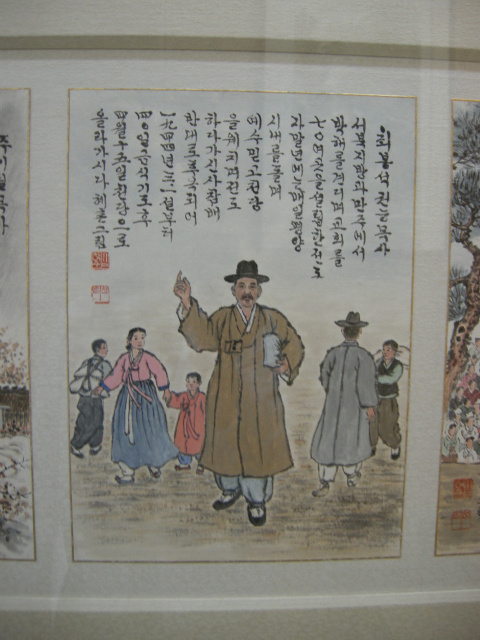 최봉석 권능목사
서북지방과 만주에서
박해를 견디며 교회를
七0여곳을 설립한 전도
자 말년에 매일 평양
시내를 돌며
예수 믿고 천당
을 웨치며 전도
하다가 신사참배
반대로 투옥되어
금식기도 후
천상으로
올라가시다 혜촌 그림
주기철 목사